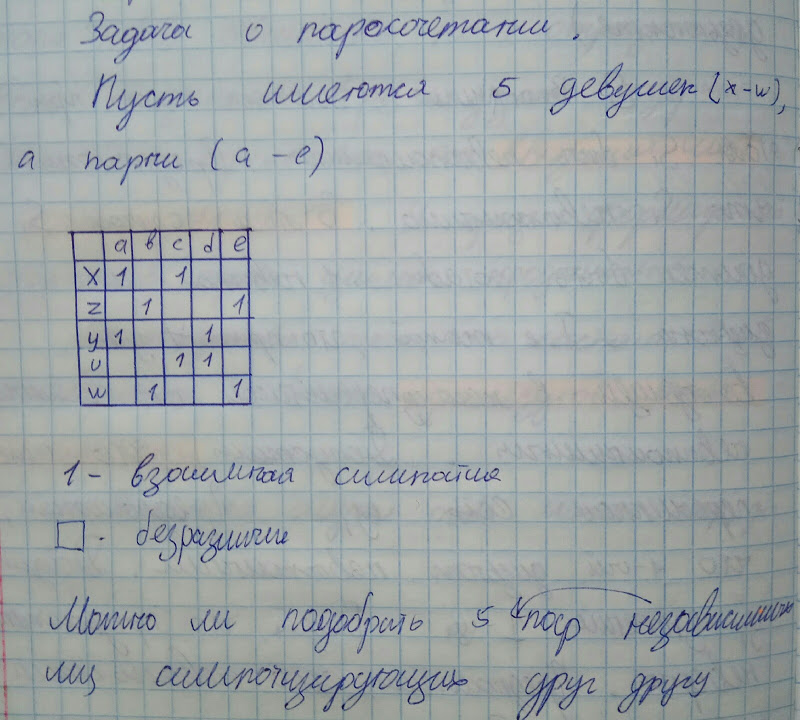 Задача о паросочетании.
Пусть имеются 5 девушек (x-w),
а парни (a-e)
a b c d e
X 1 1
z 1 1
y 1 1
u 1 1
w 1 1
1 - взаимная симпатия
□ - безразличие
Можно ли подобрать 5 пар независимых
лиц симпатизирующих друг другу